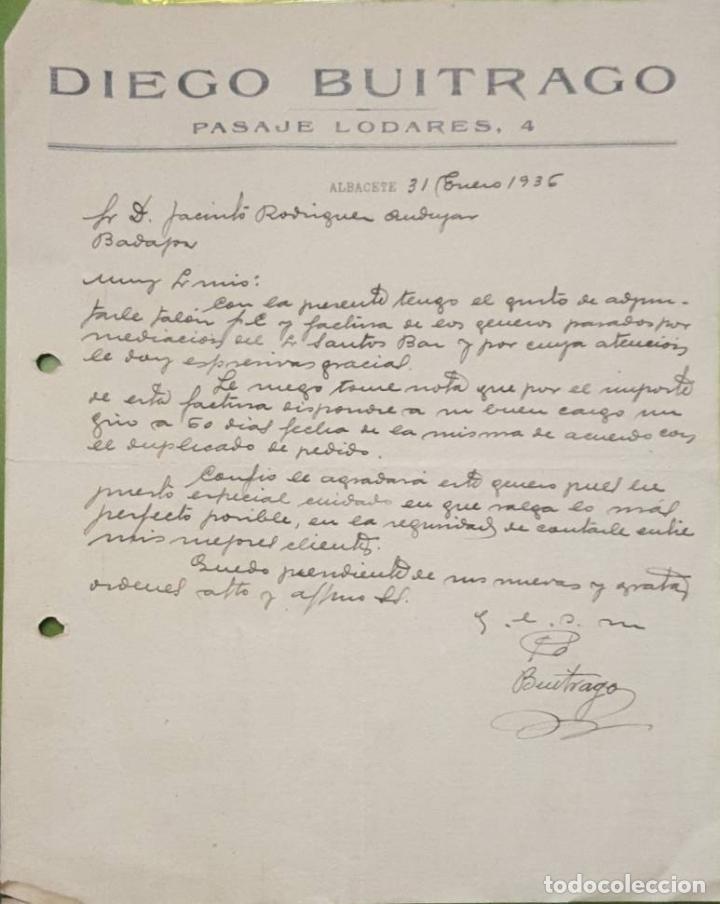 DIEGO BUITRAGO
PASAJE LODARES, 4
ALBACETE 31 Enero 1936
Sr D. Jacinto Rodriguez Andujar
Badajoz
Muy Sr mio:
Con la presente tengo el gusto de adjun-
tarle talón p.C y factura de los generos pasados por
mediación del Sr Santos Bar y por cuya atención
le doy espresivas gracias.
Le ruego tome nota que por el importe
de esta factura dispondre a su buen cargo un
giro a 60 dias fecha de la misma de acuerdo con
el duplicado de pedido.
Confio le agradará este genero pues he
puesto especial cuidado en que salga lo más
perfecto posible, en la seguridad de contarle entre
mis mejores clientes.
Quedo pendiente de sus nuevas y gratas
ordenes atto y affmo SS.
q. e. s. m
Buitrago
todocoleccion